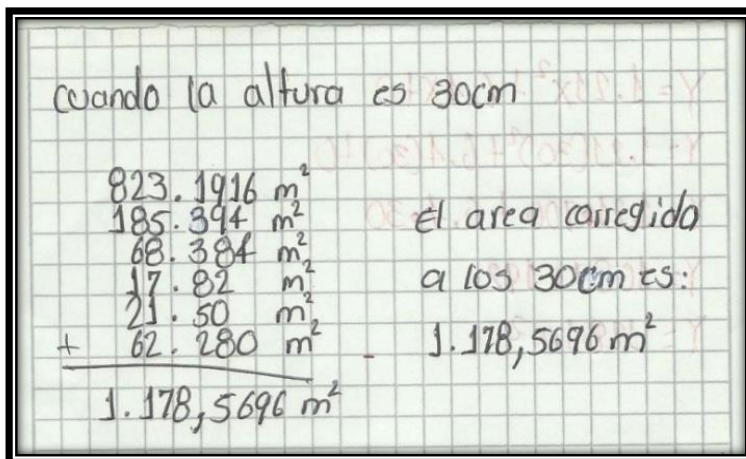 cuando la altura es 30cm
823.1916 m²
185.394 m²
68.384 m²
17.82 m²
21.50 m²
+ 62.280 m²
1.178,5696 m²
El area corregida
a los 30cm es:
1.178,5696 m²